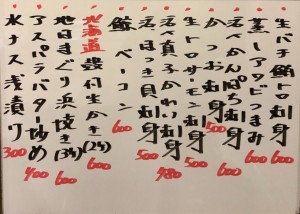 生バチ鮪トロ刺身 600
蒸しアワビつまみ 600
活〆かんぱち刺身 600
かつお刺身 500
生トロサーモン刺身 500
活〆真子かれい刺身 980
活ほっき貝刺身 500
鯨ベーコン 600
北海道 殻付生かき(2ヶ) 600
地はまぐり浜焼き(3ヶ) 600
アスパラバター炒め 400
水ナス浅漬り 300